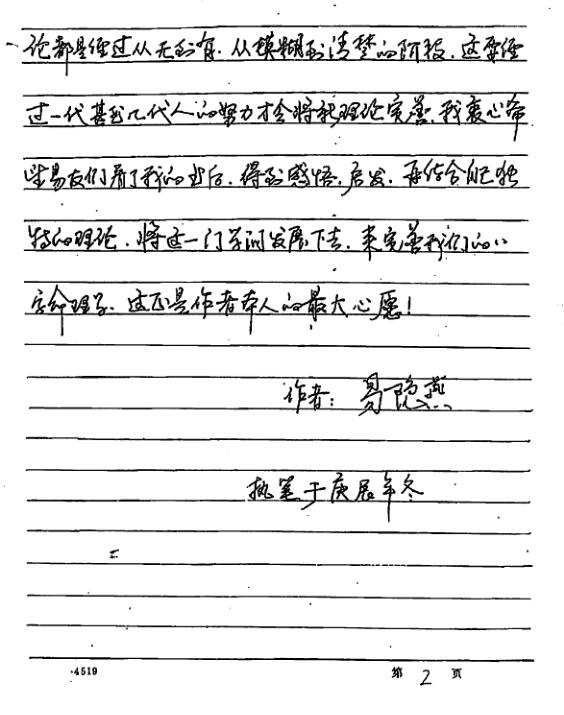 论都是经过从无到有、从模糊到清楚的阶段,这要经
过一代甚至几代人的努力才会将新理论完善,我衷心希
望易友们看了我的书后,得到感悟、启发,再结合自己独
特的理论,将这一门学问发展下去,来完善我们的八
字命理学,这正是作者本人的最大心愿!
作者:易隐燕
执笔于庚辰年冬
·4519
第 2 页